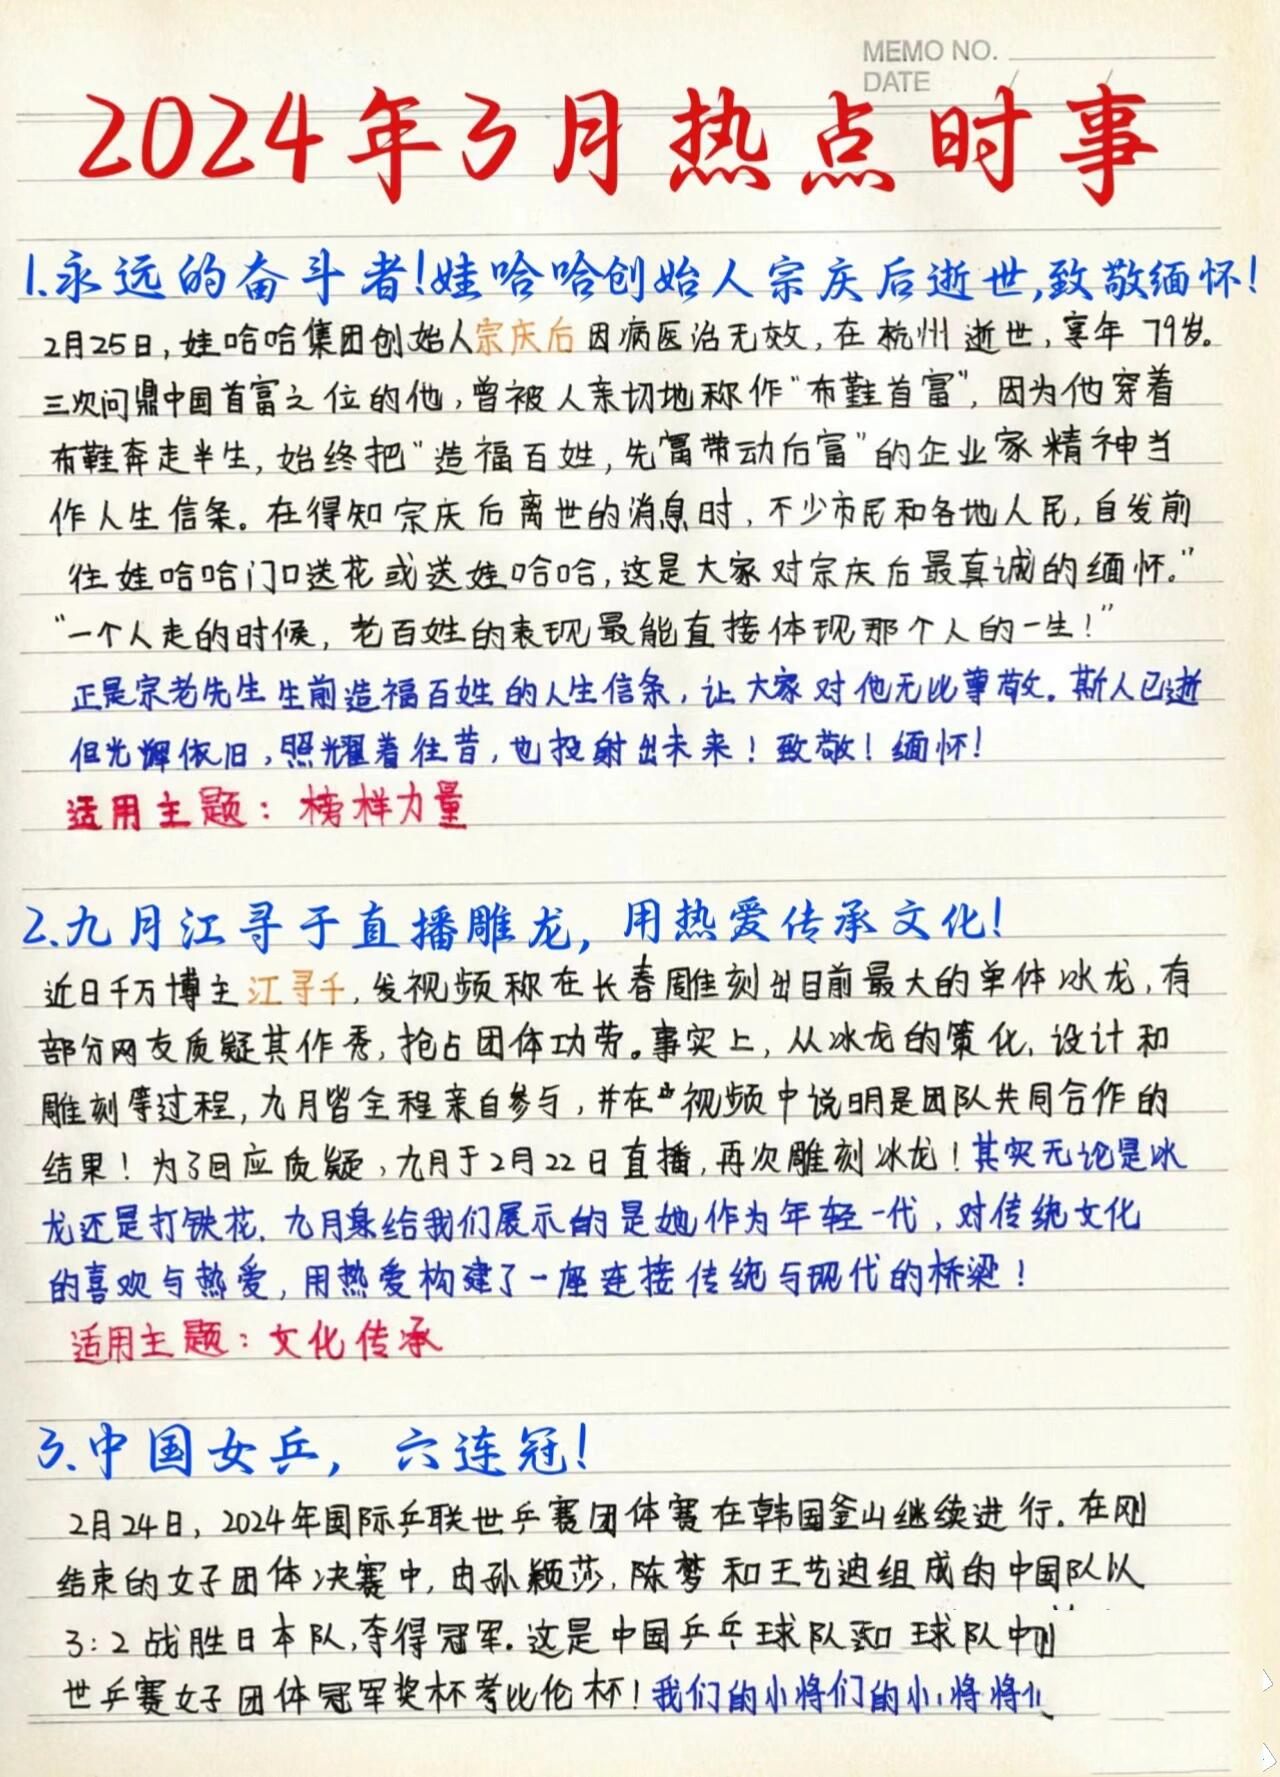 MEMO NO.
DATE / /
2024年3月热点时事
1.永远的奋斗者!娃哈哈创始人宗庆后逝世,致敬缅怀!
2月25日,娃哈哈集团创始人宗庆后因病医治无效,在杭州逝世,享年79岁。
三次问鼎中国首富之位的他,曾被人亲切地称作"布鞋首富",因为他穿着
布鞋奔走半生,始终把"造福百姓,先富带动后富"的企业家精神当
作人生信条。在得知宗庆后离世的消息时,不少市民和各地人民,自发前
往娃哈哈门口送花或送娃哈哈,这是大家对宗庆后最真诚的缅怀。"
"一个人走的时候,老百姓的表现最能直接体现那个人的一生!"
正是宗老先生生前造福百姓的人生信条,让大家对他无比尊敬。斯人已逝
但光辉依旧,照耀着往昔,也投射出未来!致敬!缅怀!
适用主题:榜样力量
2.九月江寻于直播雕龙,用热爱传承文化!
近日千万博主江寻千,发视频称在长春雕刻出目前最大的单体冰龙,有
部分网友质疑其作秀,抢占团体功劳。事实上,从冰龙的策化,设计和
雕刻等过程,九月皆全程亲自参与,并在视频中说明是团队共同合作的
结果!为了回应质疑,九月于2月22日直播,再次雕刻冰龙!其实无论是冰
龙还是打铁花,九月展给我们展示的是她作为年轻一代,对传统文化
的喜欢与热爱,用热爱构建了一座连接传统与现代的桥梁!
适用主题:文化传承
3.中国女乒,六连冠!
2月24日,2024年国际乒联世乒赛团体赛在韩国釜山继续进行.在刚
结束的女子团体决赛中,由孙颖莎,陈梦和王艺迪组成的中国队以
3:2战胜日本队,夺得冠军.这是中国乒乓球队 球队中
世乒赛女子团体冠军奖杯考比伦杯!我们的小将们的小将将